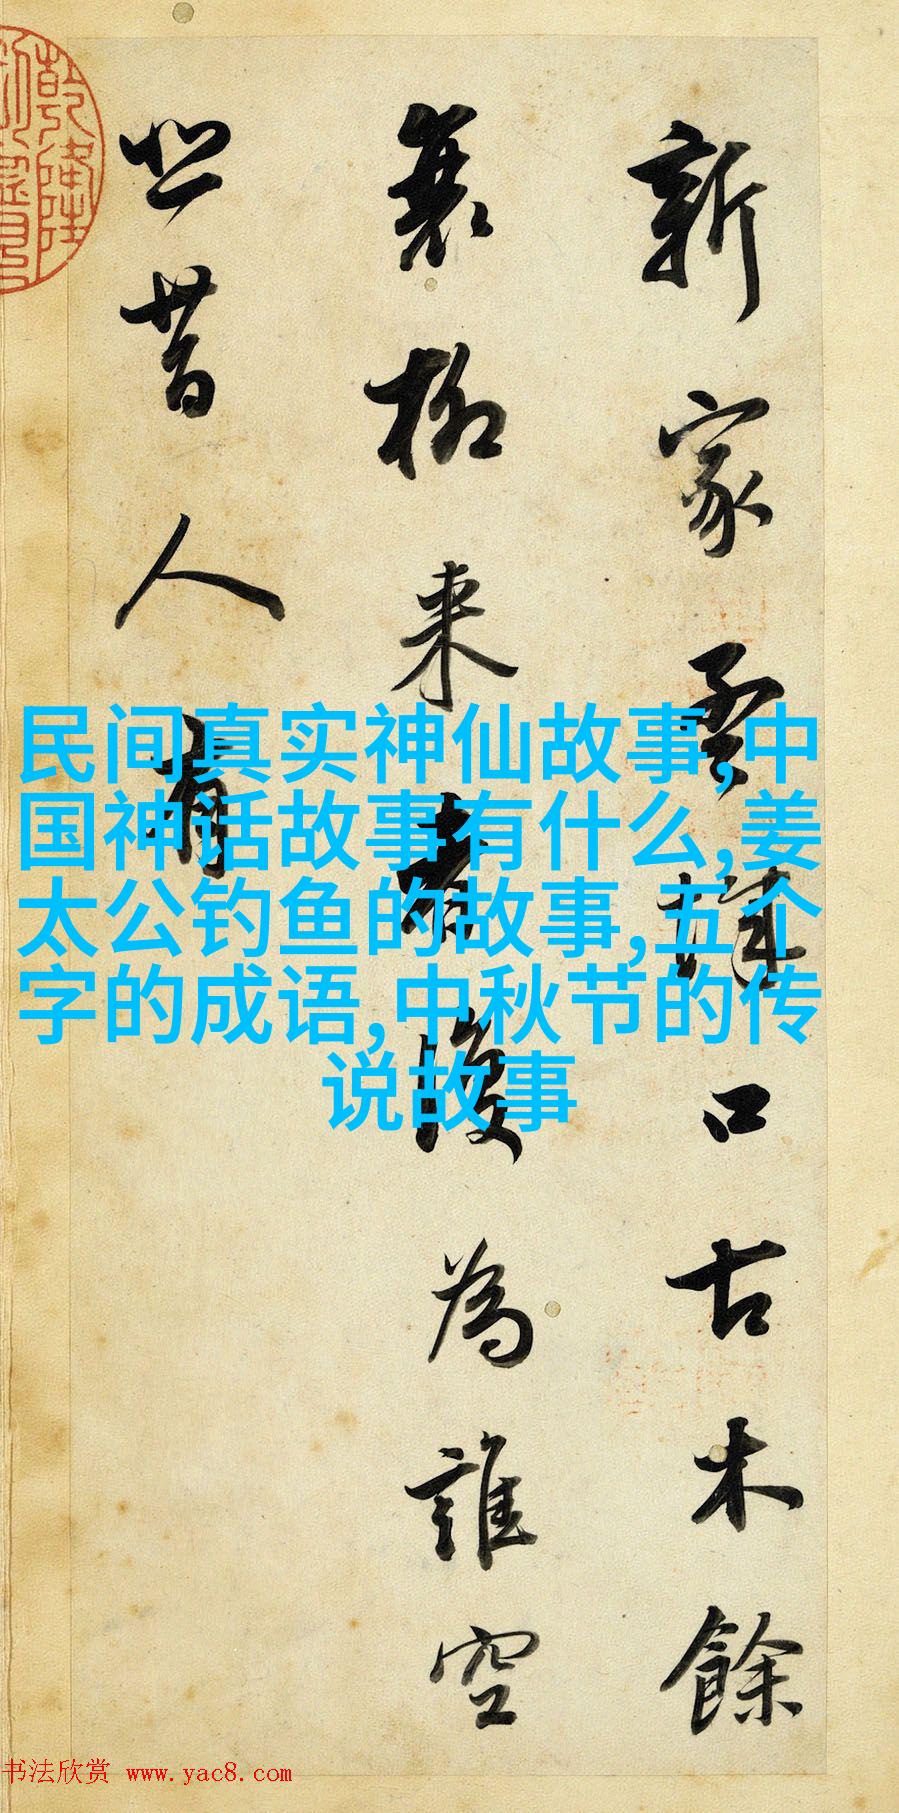 新家孟城口古木餘
衰柳来者復為誰空
悲昔人有
民间真实神仙故事,中
国神话故事有什么,姜
太公钓鱼的故事,五个
字的成语,中秋节的传
说故事
书法欣赏 www.yac8.com